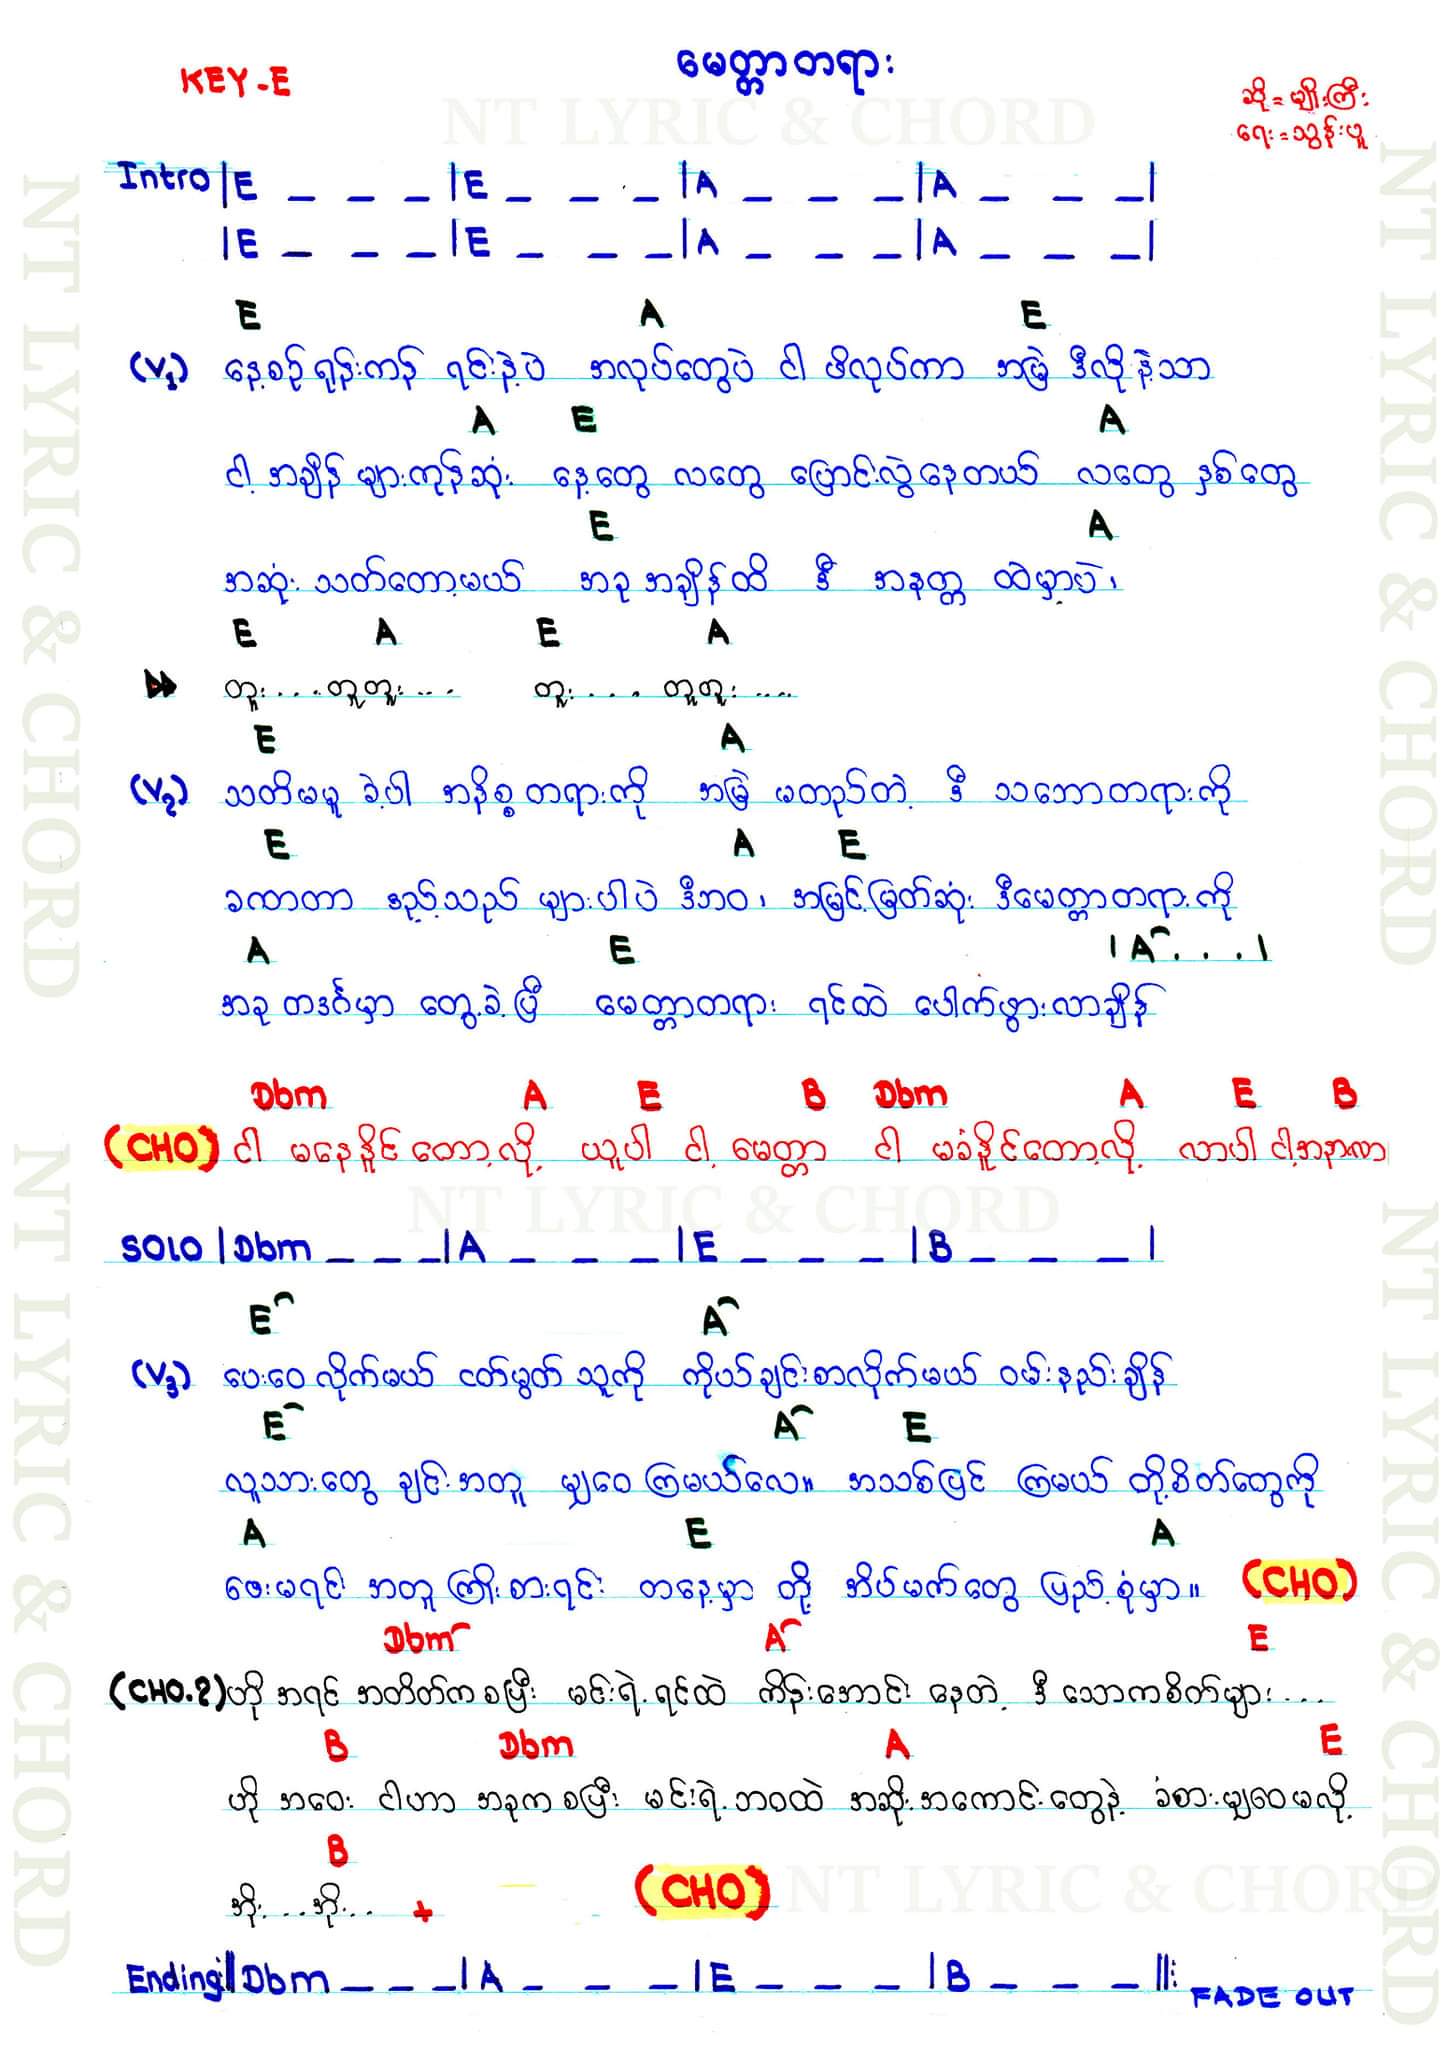 မေတ္တာတရား
KEY-E
ဆို = မျိုးကြီး
ရေး = သွန်းယူ
NT LYRIC & CHORD
Intro |E _ _ _ |E _ _ _ |A _ _ _ |A _ _ _|
|E _ _ _ |E _ _ _ |A _ _ _ |A _ _ _|
E A E
(V1) နေ့စဉ် ရုန်းကန် ရင်းနဲ့ပဲ အလုပ်တွေပဲ ငါ ဖိလုပ်ကာ အမြဲ ဒီလိုနဲ့သာ
A E A
ငါ့ အချိန် များကုန်ဆုံး နေ့တွေ လတွေ ပြောင်းလွဲနေတယ် လတွေ နှစ်တွေ
E A
အဆုံး သတ်တော့မယ် အခု အချိန်ထိ ဒီ အနတ္တ ထဲမှာပဲ၊
E A E A
တူး.... တူတူး.... တူး.... တူတူး....
E A
(V2) သတိမမူ ခဲ့ပါ အနိစ္စ တရားကို အမြဲ မတည်တဲ့ ဒီ သဘောတရားကို
E A E
ခဏတာ ဧည့်သည် များပါပဲ ဒီဘဝ၊ အမြင့်မြတ်ဆုံး ဒီမေတ္တာတရားကို
A E | A . . . |
အခု တဒင်္ဂမှာ တွေ့ခဲ့ပြီ မေတ္တာတရား ရင်ထဲ ပေါက်ဖွားလာချိန်
Dbm A E B Dbm A E B
(CHO) ငါ မနေနိူင် တော့လို့ ယူပါ ငါ့ မေတ္တာ ငါ မခံနိူင်တော့လို့ လာပါ ငါ့အနားက
NT LYRIC & CHORD
SOLO |Dbm _ _ _|A _ _ _ |E _ _ _ |B _ _ _ |
E A
(V3) ပေးဝေ လိုက်မယ် ငတ်မွတ် သူကို ကိုယ်ချင်းစာလိုက်မယ် ဝမ်းနည်းချိန်
E A E
လူသားတွေ ချင်းအတူ မျှဝေ ကြမယ်လေ။ အသစ်ပြင် ကြမယ် တို့စိတ်တွေကို
A E A
ဖေးမရင်း အတူ ကြိုးစားရင်း တနေ့မှာ တို့ အိပ်မက်တွေ ပြည့်စုံမှာ။ (CHO)
Dbm A E
(CHO.2) ဟို အရင် အတိတ်ကစပြီး မင်းရဲ့ ရင်ထဲ ကိန်းအောင်း နေတဲ့ ဒီ သောကစိတ်များ...
B Dbm A E
ဟို အဝေး ငါဟာ အခုက စပြီး မင်းရဲ့ဘဝထဲ အဆိုးအကောင်းတွေနဲ့ ခံစားမျှဝေမလို့
B
အိုး...အို... + (CHO)
NT LYRIC & CHORD
Ending:||Dbm _ _ _|A _ _ _ |E _ _ _ |B _ _ _ ||: FADE OUT
NT LYRIC & CHORD
NT LYRIC & CHORD
NT LYRIC & CHORD
NT LYRIC & CHORD